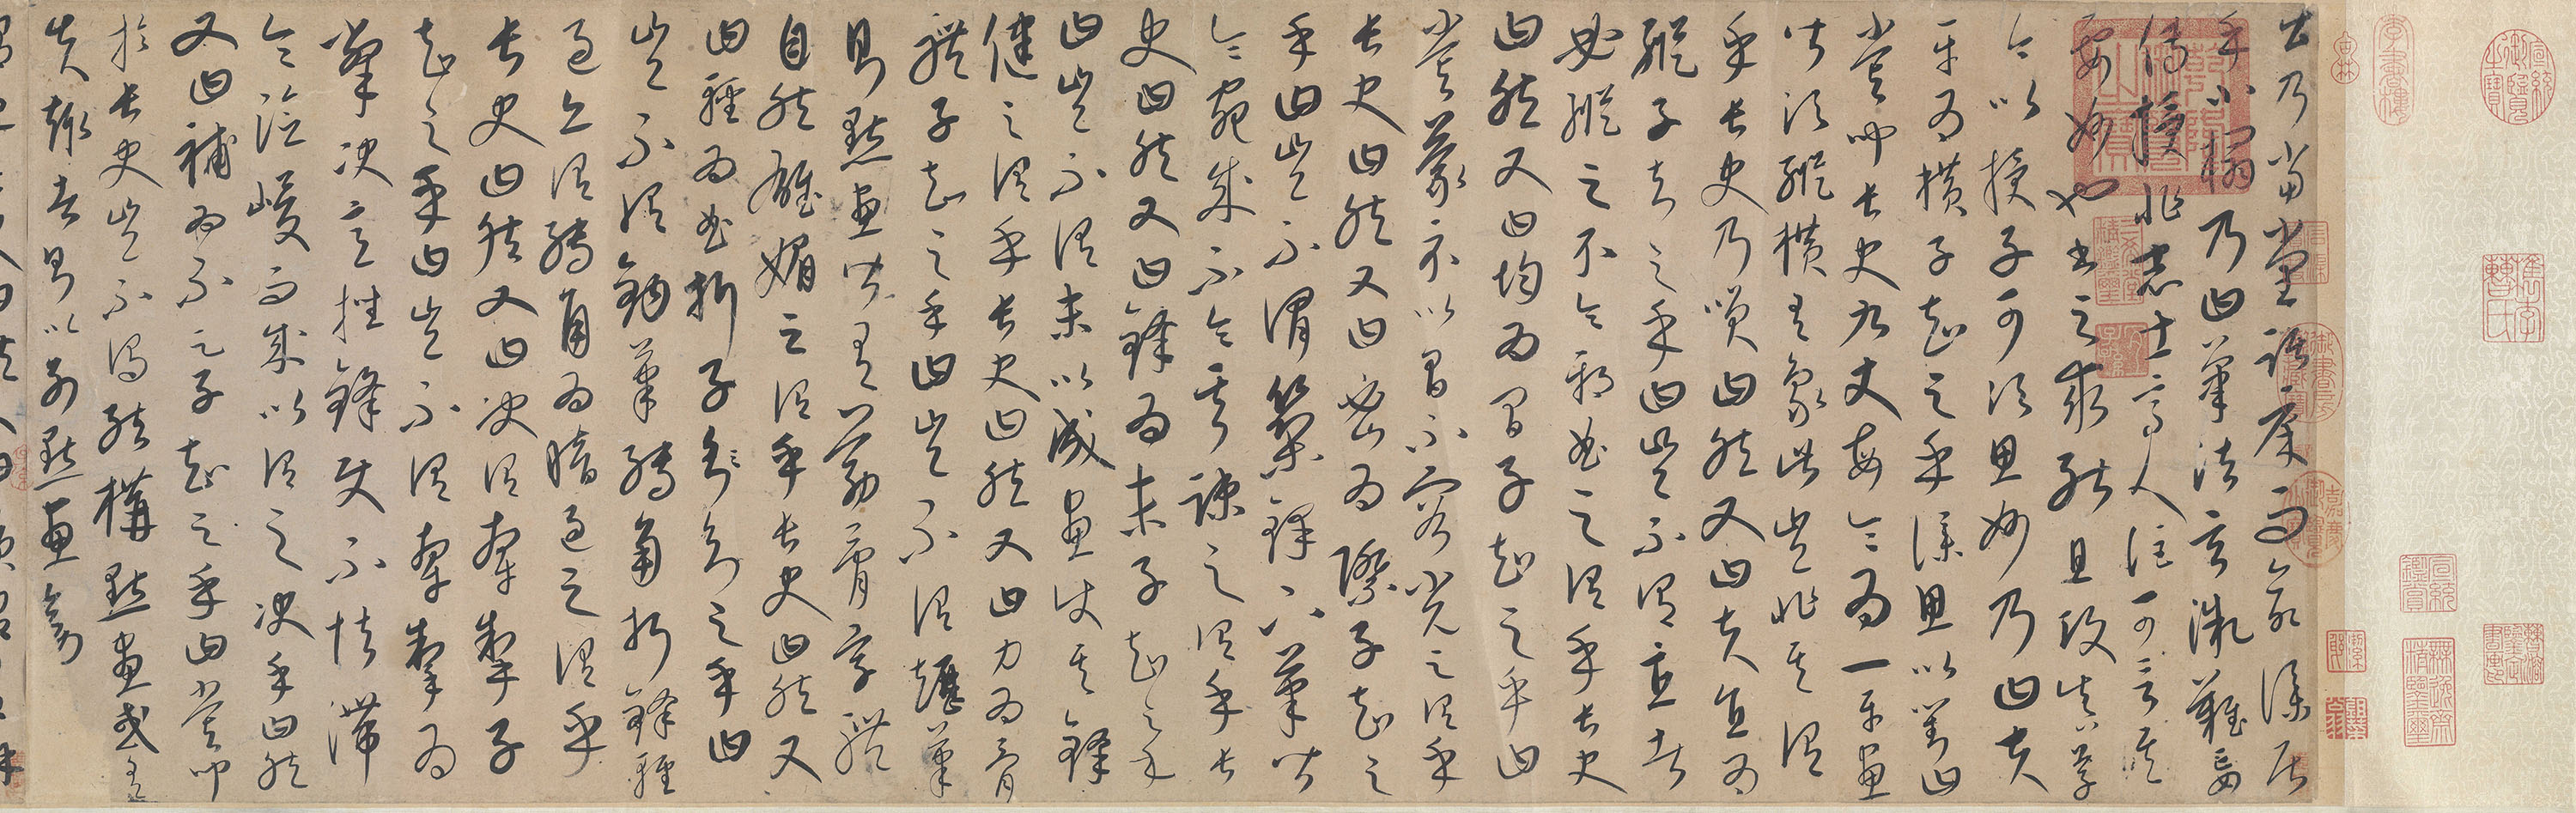 乃當堂踞床而命僕居
乎小榻乃曰筆法玄微難妄
傳授非志士高人詎可言其
要妙也書之求能且攻真草
今以授子可須思妙乃曰夫
平為橫子知之乎僕思以對曰
嘗聞長史九丈每令為一平畫
皆須縱橫有象此豈非其謂
乎長史乃笑曰然又曰夫直為
縱子知之乎曰豈不謂直者
必縱之不令邪曲之謂乎長史
曰然又曰均為間子知之乎曰
嘗蒙示以間不容光之謂乎
長史曰然又曰密為際子知之
乎曰豈不謂築鋒下筆皆
令宛成不令其疎之謂乎長
史曰然又曰鋒為末子知之乎
曰豈不謂末以成畫使其鋒
健之謂乎長史曰然又曰力為骨
體子知之乎曰豈不謂趯筆
則點畫皆有筋骨字體
自然雄媚之謂乎長史曰然又
曰輕為曲折子知之乎曰
豈不謂鉤筆轉角折鋒輕
過亦謂轉角為暗過之謂乎
長史曰然又曰決謂牽掣子
知之乎曰豈不謂牽掣為
決意挫鋒使不怯滯
令險峻而成以謂之決乎曰然
又曰補為不足子知之乎曰嘗聞
於長史豈不謂結構點畫或有
失趣者則以別點畫旁